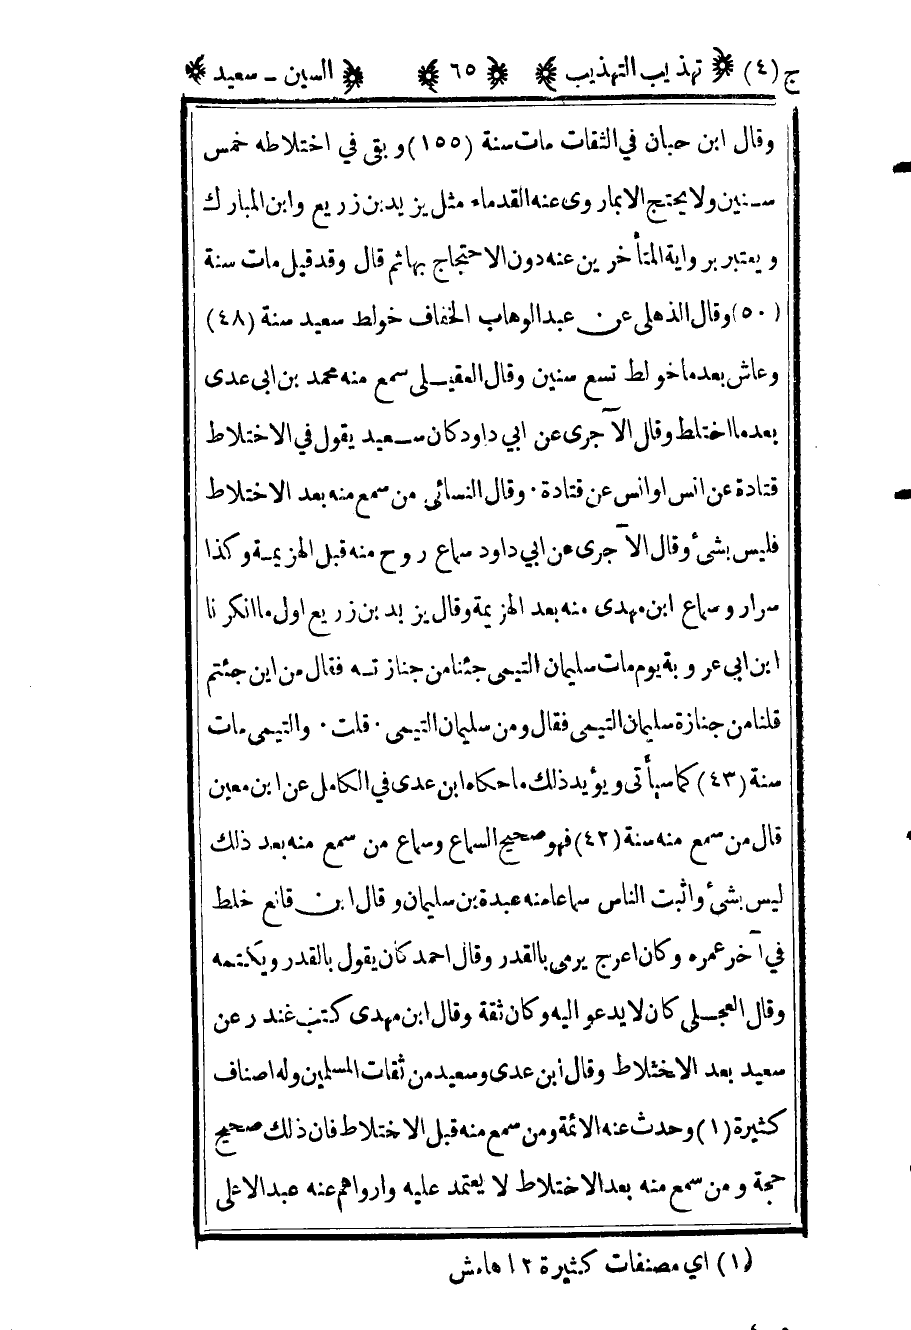 ج (٤) تهذيب التهذيب ٦٥ السين - سعيد
وقال ابن حبان في الثقات مات سنة (١٥٥) وبقي في اختلاطه خمس
سنين ولا يحتج الا بما روى عنه القدماء مثل يزيد بن زريع وابن المبارك
ويعتبر برواية المتأخرين عنه دون الاحتجاج بها ثم قال وقد قيل مات سنة
(٥٠) وقال الذهلى عن عبد الوهاب الخفاف خولط سعيد سنة (٤٨)
وعاش بعد ما خولط تسع سنين وقال العقيلى سمع منه محمد بن ابى عدى
بعد ما اختلط وقال الآجرى عن ابي داود كان سعيد يقول في الاختلاط
قتادة عن انس او انس عن قتادة ٠ وقال النسائى من سمع منه بعد الاختلاط
فليس بشئ وقال الآجرى عن ابي داود سماع روح منه قبل الهزيمة وكذا
سرار وسماع ابن مهدى منه بعد الهزيمة وقال يزيد بن زريع اول ما انكرنا
ابن ابي عروبة يوم مات سليمان التيمى جئنا من جنازته فقال من اين جئتم
قلنا من جنازة سليمان التيمى فقال ومن سليمان التيمى ٠ قلت ٠ والتيمى مات
سنة (٤٣) كما سيأتى ويؤيد ذلك ما حكاه ابن عدى في الكامل عن ابن معين
قال من سمع منه سنة (٤٢) فهو صحيح السماع وسماع من سمع منه بعد ذلك
ليس بشئ واثبت الناس سماعا منه عبدة بن سليمان وقال ابن قانع خلط
في آخر عمره وكان اعرج يرمى بالقدر وقال احمد كان يقول بالقدر ويكتمه
وقال العجلى كان لا يدعو اليه وكان ثقة وقال ابن مهدى كتب غندر عن
سعيد بعد الاختلاط وقال ابن عدى وسعيد من ثقات المسلمين وله اصناف
كثيرة (١) وحدث عنه الائمة ومن سمع منه قبل الاختلاط فان ذلك صحيح
حجة ومن سمع منه بعد الاختلاط لا يعتمد عليه وارواهم عنه عبد الاعلى
(١) اي مصنفات كثيرة ١٢ هامش